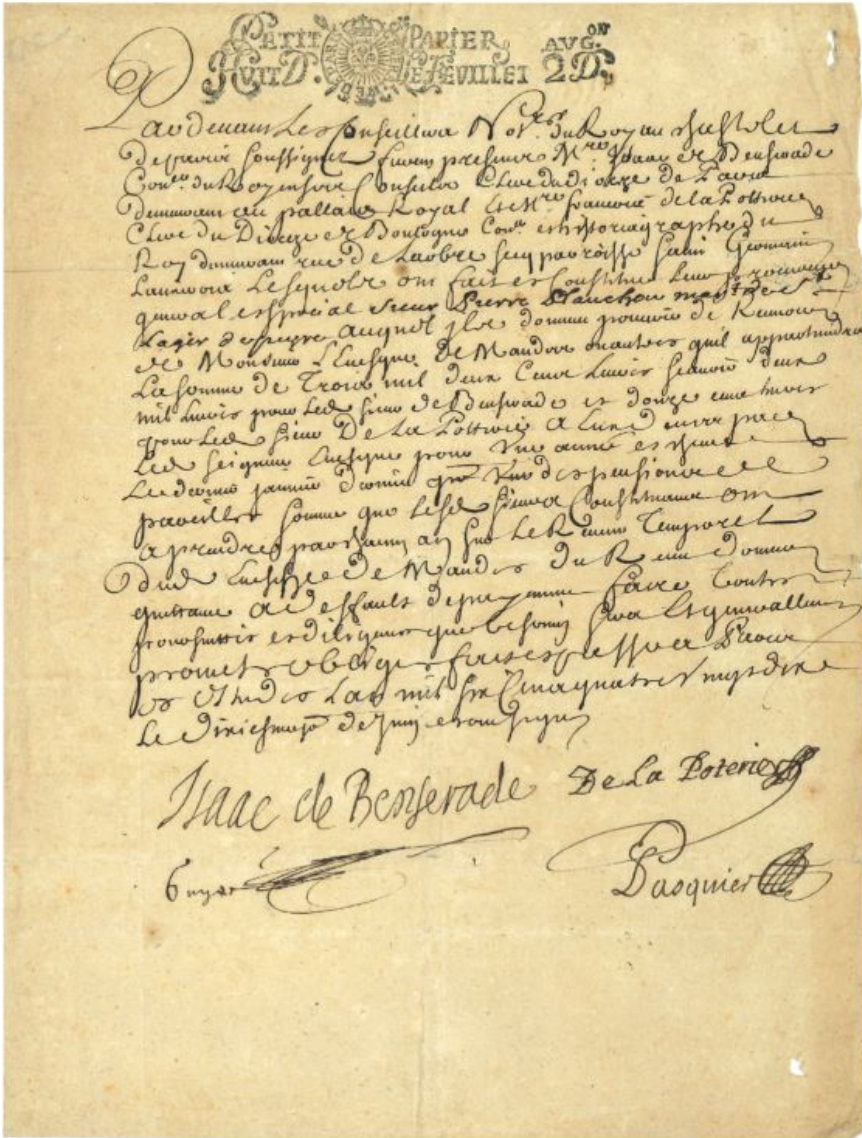 PETIT PAPIER AVG.ON
HUIT D. LE FEUILLET 2 D.
Pardevant Les Conseillers No.res du Roy au Chastelet
de paris soussignez furent presens M.re Isaac de Benserade
Con.er du Roy en ses Conseils Clerc du dioceze de
demeurant au pallais Royal et M.re francois de la Potterie
Clerc du Dioceze de Boulogne Con.er et historiographe du
Roy demeurant rue de Larbre secq parroisse Saint Germain
Lauxerois Lesquels ont fait et Constitué Leur procureur
general et special Sieur Pierre Planchon
auquel ils donnent pouvoir de Recevoir
de Monsieur L'Evesque de Mandes ou autres quil appartiendra
La somme de Trois mil deux Cens Livres scavoir deux
mil Livres pour Led. sieur de Benserade et douze cens livres
pour Led. sieur De La Potterie a Eux deues par
Led. seigneur Evesque pour Une année escheue
Le dernier janvier dernier de pension de
pareille somme que lesd. sieurs Constituans ont
a prendre par chacun an sur Le Revenu Temporel
dud. Evesché de Mandes du Receu donner
quittance a deffault de payement faire touttes
poursuittes et diligences que besoin sera Et generallement
promet obliger fait et passé a Paris
es Estudes Lan mil six Cens quatre Vingt dix
Le de Juin et ont signé
Isaac de Benserade De La Poterie
Pasquier